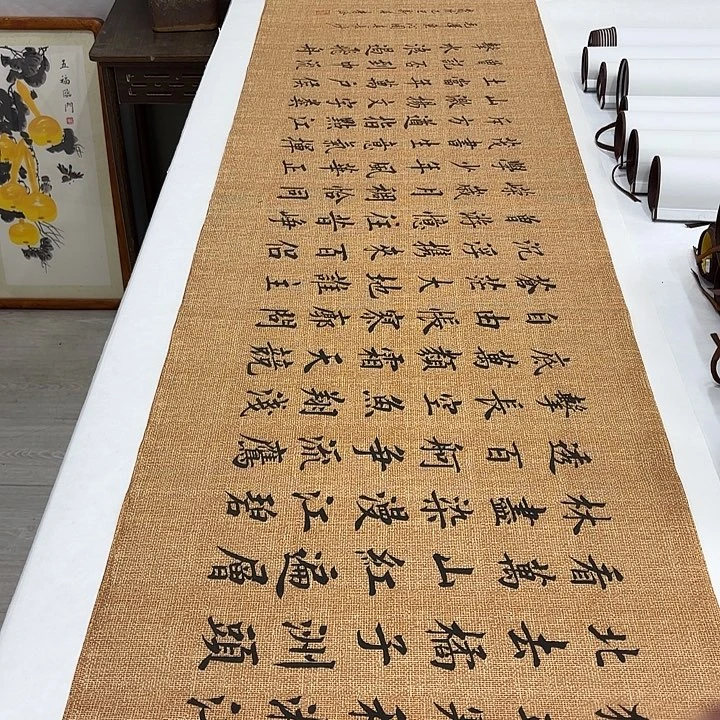 獨立寒秋湘江
北去橘子洲頭
看萬山紅遍層
林盡染漫江碧
透百舸爭流鷹
擊長空魚翔淺
底萬類霜天競
自由悵寥廓問
蒼茫大地誰主
沉浮攜來百侶
曾游憶往昔崢
嶸歲月稠恰同
學少年風華正
茂書生意氣揮
斥方遒指點江
山激揚文字糞
土當年萬戶侯
曾記否到中流
擊水浪遏飛舟
五福臨門